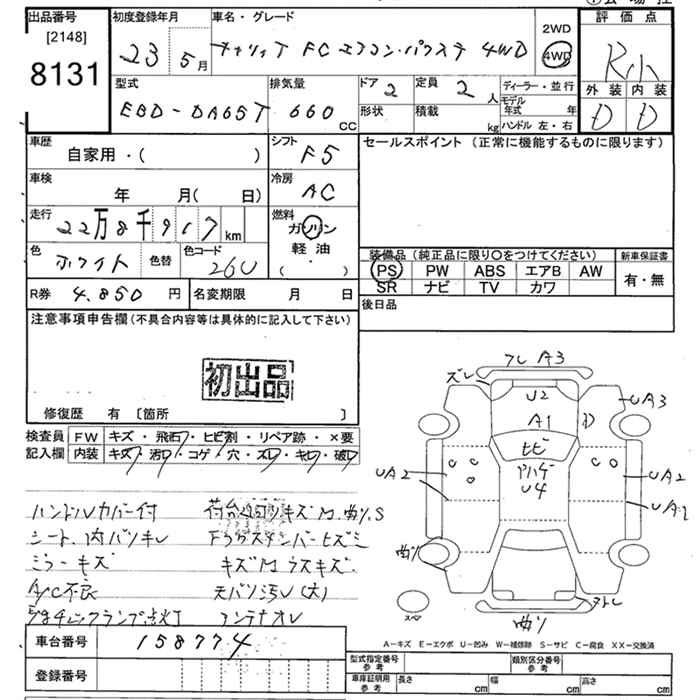 出品番号 初度登録年月 車名・グレード 2WD 評価点
[2148] 23 5月 キャリィT FC エアコン・パワステ 4WD 4WD R小
8131 型式 排気量 ドア 2 定員 2人 ディーラー・並行 外装 内装
EBD-DA65T 660 CC 形状 積載 kg モデル年式 年 D D
ハンドル 左・右
車歴 シフト セールスポイント (正常に機能するものに限ります)
自家用・( ) F5
車検 冷房
年 月(日) AC
走行 22万8千917km 燃料 ガソリン
軽油
( )
色 ホワイト 色替 色コード 26U
装備品 (純正品に限り○をつけてください) 新車保証書
PS PW ABS エアB AW 有・無
SR ナビ TV カワ
R券 4,850円 名変期限 月 日 後日品
注意事項申告欄(不具合内容等は具体的に記入して下さい)
初出品
修復歴 有 〔箇所 〕
検査員 FW キズ・飛石・ヒビ割・リペア跡・×要
記入欄 内装 キズ・汚れ・コゲ・穴・ズレ・キレ・破れ
フレ A3
ズレ
U2 UA3
A1
ヒビ
ヤハゲ
UA2 U4 UA2
UA2
曲り
ヌケレ
曲り
ハンドルカバー付 荷台廻りキズM曲りS
シート、内バリキレ Fフラグステンバーヒズミ
ミラーキズ キズMラスキズ
A/C不良 天バリ汚レ(大)
チェックランプ点灯 アンテナオレ
車台番号 158774
A-キズ E-エクボ U-凹み W-補修跡 S-サビ C-腐食 XX-交換済
登録番号 型式指定番号 参考 類別区分番号 参考
車庫証明用 参考 長さ cm 幅 cm 高さ cm